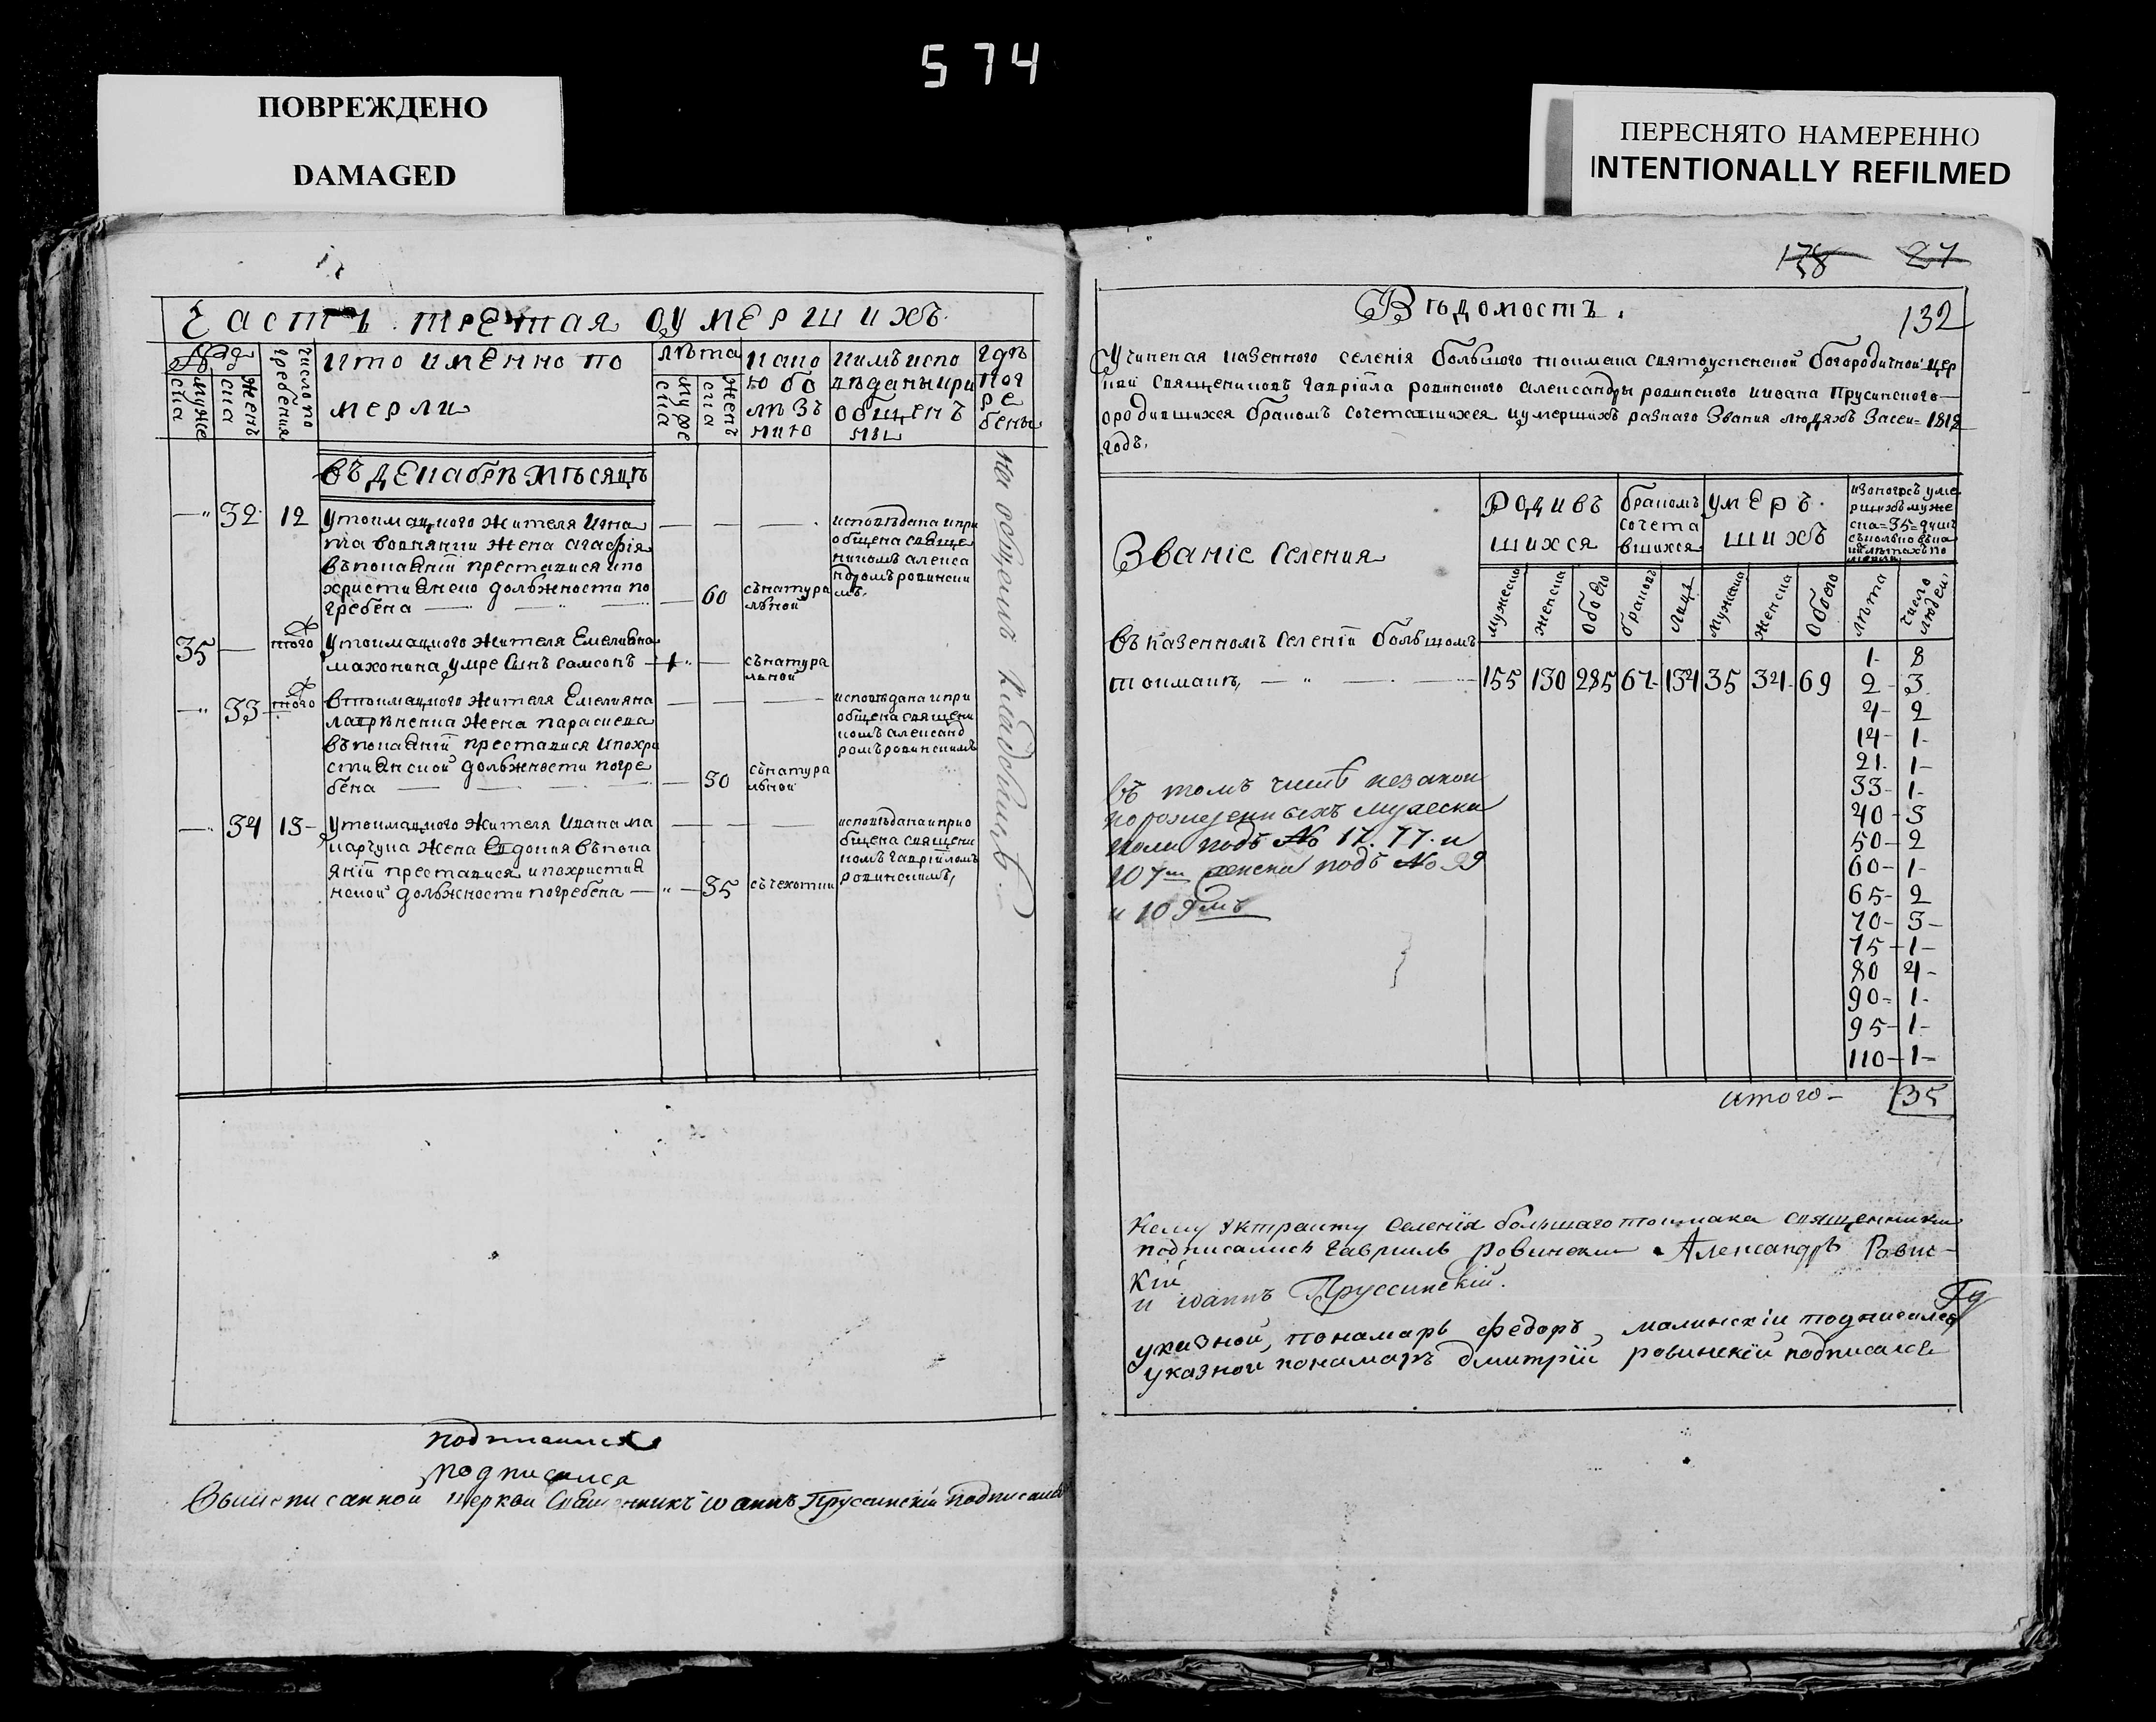 574
ПОВРЕЖДЕНО
DAMAGED
ПЕРЕСНЯТО НАМЕРЕННО
INTENTIONALLY REFILMED
Часть третая оумершихъ
№
муже
ска
женъ
ска
число по
гребения
кто имѣнно по
мерли
лѣта
муже
ска
женъ
ска
како
ю бо
лѣзъ
нию
кимъ испо
вѣданы и при
общенъ
ны
гдѣ
пог
ре
бены
въ декабрѣ мѣсяцѣ
32 12
утокмацкого жителя Игна
та вовнянки жена агафія
въ покаяній преставися и по
христианско должности по
гребена
60
сънатура
льной
исповѣдана и при
общена свяще
никомъ алекса
ндромъ ровински
мъ,
на общемъ кладовищѣ
35
того
утокмацкого жителя Емелияна
махонина умре сынъ самсонъ
1
сънатура
льной
33
того
втокмацкого жителя Емелияна
лавръненка жена параскева
въ покаяній преставися и похри
стианской должности погре
бена
50
сънатура
льной
исповѣдана и при
общена священи
комъ александ
ромъ ровинскимъ
34 13
утокмацкого жителя Ивана ма
карчука жена Евдокия въ пока
яній преставися и похристиа
нской должности погребена
35
съчехотки
исповѣдана и прио
бщена священи
комъ гавріиломъ
ровинскимъ,
подписался
подписался
Вышеписанной церкви Священникъ Іоаннъ Пруссинскій подписался
178 27
132
Вѣдомость.
Учиненая казенного селенія большого токмака святоуспенской богородичной цер
кви священиковъ гавріила ровинского александры ровинского иоана Прусинского
ородившихся бракомъ сочетавшихся иумершихъ разного звания людяхъ засеи 1812
годъ.
Званіе Селения
Родивъ
шихся
бракомъ
сочета
вшихся
умеръ
шихъ
изкоторыхъ уме
ршихъ муже
ска 35 душъ
съколько въка
кихъ лѣтахъ по
мерли
мужеска
женска
обоего
браковъ
лицъ
мужеска
женска
обоего
лѣта
число
людей
въ казенномъ селеніи большомъ
токмакѣ,
155 130 285 67 134 35 34 69
1 8
2 3
4 2
14 1
21 1
33 1
40 3
50 2
60 1
65 2
70 3
75 1
80 4
90 1
95 1
110 1
итого 35
въ томъ числѣ незакон
норожденныхъ мужеска
пола подъ № 17. 77. и
107мъ женска подъ № 99
и 109мъ
Ксему экстракту селенія большаго токмака священники
подписались гавриилъ ровински Александръ Ровис
кій
и іоаннъ Пруссинскій.
указной понамарь федоръ малинскій подписался
указной понамарь дмитрій ровинскій подписался